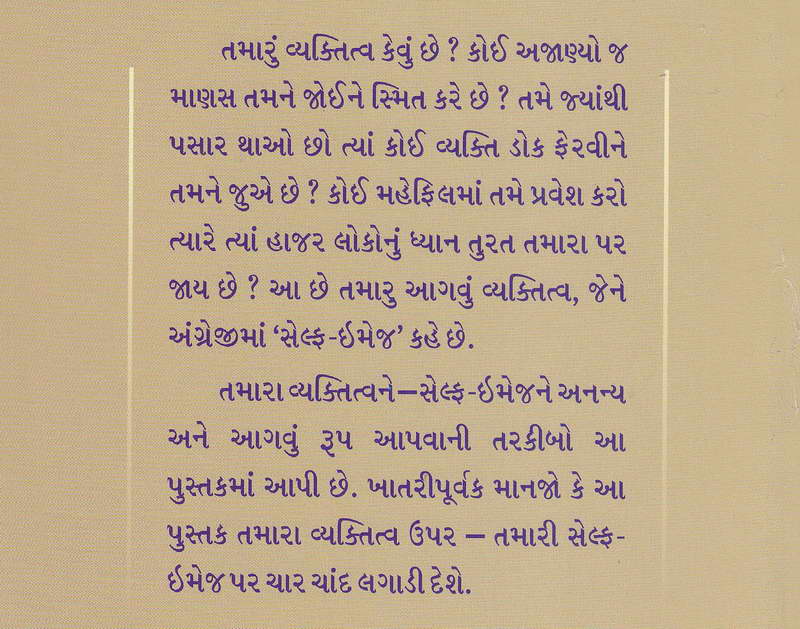 તમારું વ્યક્તિત્વ કેવું છે ? કોઈ અજાણ્યો જ
માણસ તમને જોઈને સ્મિત કરે છે ? તમે જ્યાંથી
પસાર થાઓ છો ત્યાં કોઈ વ્યક્તિ ડોક ફેરવીને
તમને જુએ છે ? કોઈ મહેફિલમાં તમે પ્રવેશ કરો
ત્યારે ત્યાં હાજર લોકોનું ધ્યાન તુરત તમારા પર
જાય છે ? આ છે તમારુ આગવું વ્યક્તિત્વ, જેને
અંગ્રેજીમાં ‘સેલ્ફ-ઇમેજ’ કહે છે.
તમારા વ્યક્તિત્વને—સેલ્ફ-ઇમેજને અનન્ય
અને આગવું રૂપ આપવાની તરકીબો આ
પુસ્તકમાં આપી છે. ખાતરીપૂર્વક માનજો કે આ
પુસ્તક તમારા વ્યક્તિત્વ ઉપર – તમારી સેલ્ફ-
ઇમેજ પર ચાર ચાંદ લગાડી દેશે.